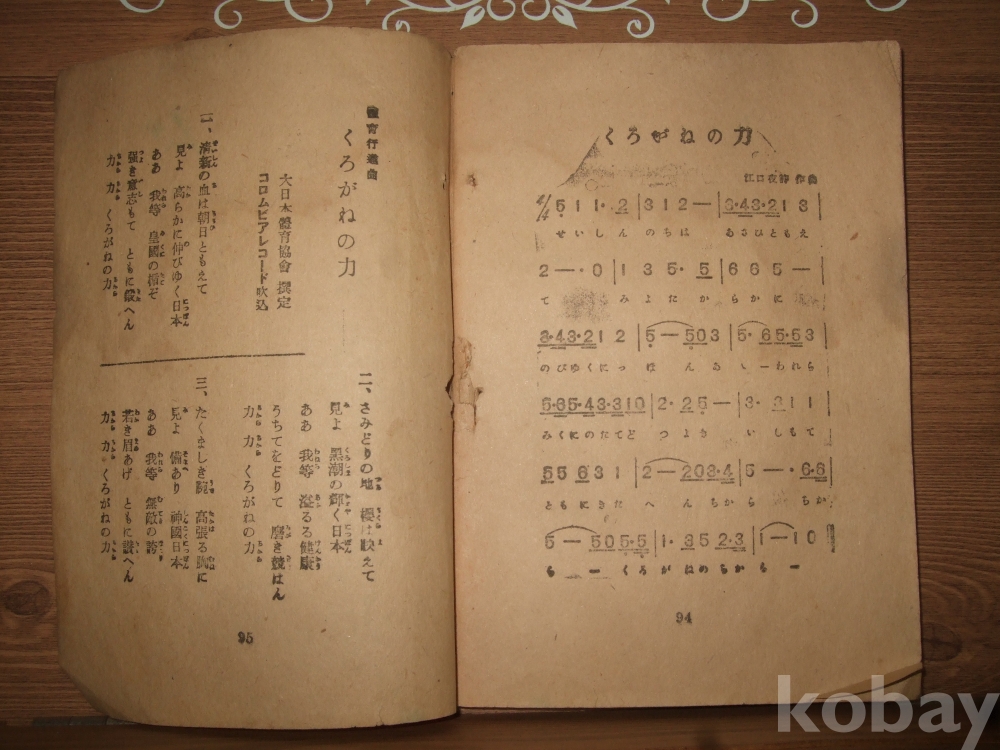 くろがねの力
江口夜詩 作曲
4/4 5 1 1・2 | 3 1 2 — | 3・4 3・2 1 3 |
せいしんのちは あさひともえ
2 — ・0 | 1 3 5・5 | 6 6 5 — |
て みよたからかに
3・4 3・2 1 2 | 5 — 5 0 3 | 5・6 5・5 3 |
のびゆくにっ ぽん ああ ーわれら
5・6 5・4 3・3 1 0 | 2・2 5 — | 3・3 1 1 |
みくにのたてぞ つよき いしもて
5 5 6 3 1 | 2 — 2 0 3・4 | 5 — ・6・6 |
ともにきた へんちから ちか
5 — 5 0 5・5 | 1・3 5 2・3 | 1 — 1 0 |
ら ー くろがねのちから ー
94
體育行進曲
くろがねの力
大日本體育協會 撰定
コロムビアレコード吹込
一、淸新の血は朝日ともえて
見よ 高らかに伸びゆく日本
ああ 我等 皇國の楯ぞ
强き意志もて ともに鍛へん
力 力 くろがねの力
二、さみどりの地 櫻は映えて
見よ 黑潮の輝く日本
ああ 我等 溢るる健康
うちてをどりて 磨き競はん
力 力 くろがねの力
三、たくましき腕 高張る胸に
見よ 備あり 神國日本
ああ 我等 無敵の誇
若き眉あげ ともに護へん
力 力 くろがねの力
95
kobay